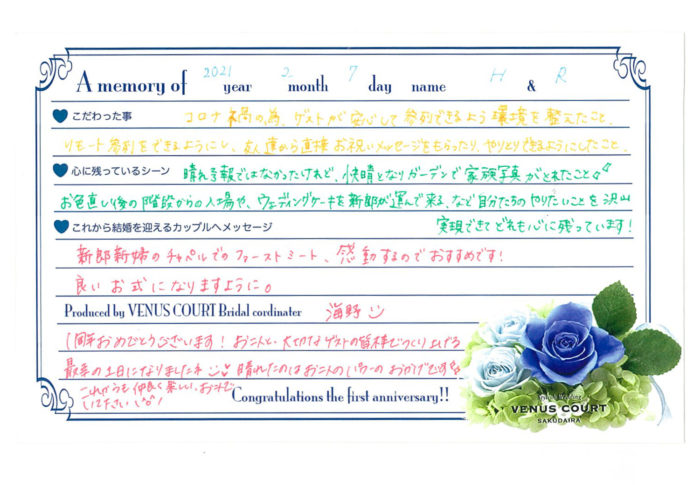 A memory of 2021 year 2 month 7 day name H & R
こだわった事 コロナ禍の為、ゲストが安心して参列できるよう環境を整えたこと。
リモート参列をできるようにし、友人達から直接お祝いメッセージをもらったり、やりとりできるようにしたこと。
心に残っているシーン 晴れ予報ではなかったけれど、快晴となりガーデンで家族写真がとれたこと
お色直し後の階段からの入場や、ウェディングケーキを新郎が運んで来る、など自分たちのやりたいことを沢山
これから結婚を迎えるカップルへメッセージ 実現できてどれも心に残っています!
新郎新婦のチャペルでのファーストミート、感動するのでおすすめです!
良いお式になりますように。
Produced by VENUS COURT Bridal cordinater 海野
1周年おめでとうございます!お二人と、大切なゲストの皆様でつくり上げる
最幸の1日になりましたね 晴れたのはお二人のパワーのおかげです
これからも仲良く楽しいお二人で
いてください(^o^)
Congratulations the first anniversary!!
VENUS COURT
SAKUDAIRA